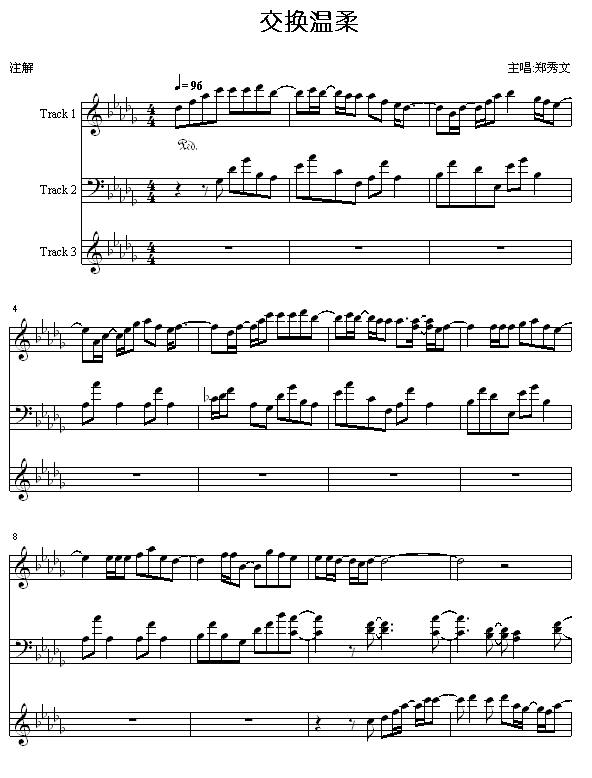 交换温柔
注解
主唱:郑秀文
= 96
Track 1
Ped.
Track 2
Track 3
4
8